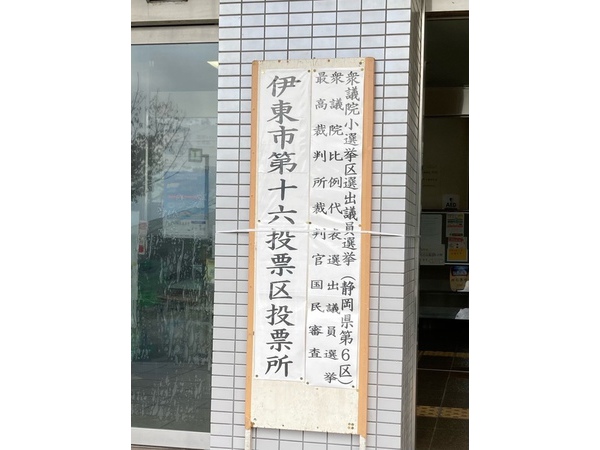 衆議院小選挙区選出議員選挙（静岡県第６区）
衆議院比例代表選出議員選挙
最高裁判所裁判官国民審査
伊東市第十六投票区投票所